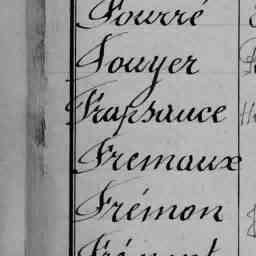 Fourré
Fouyer
Frapsauce
Fremaux
Frémon